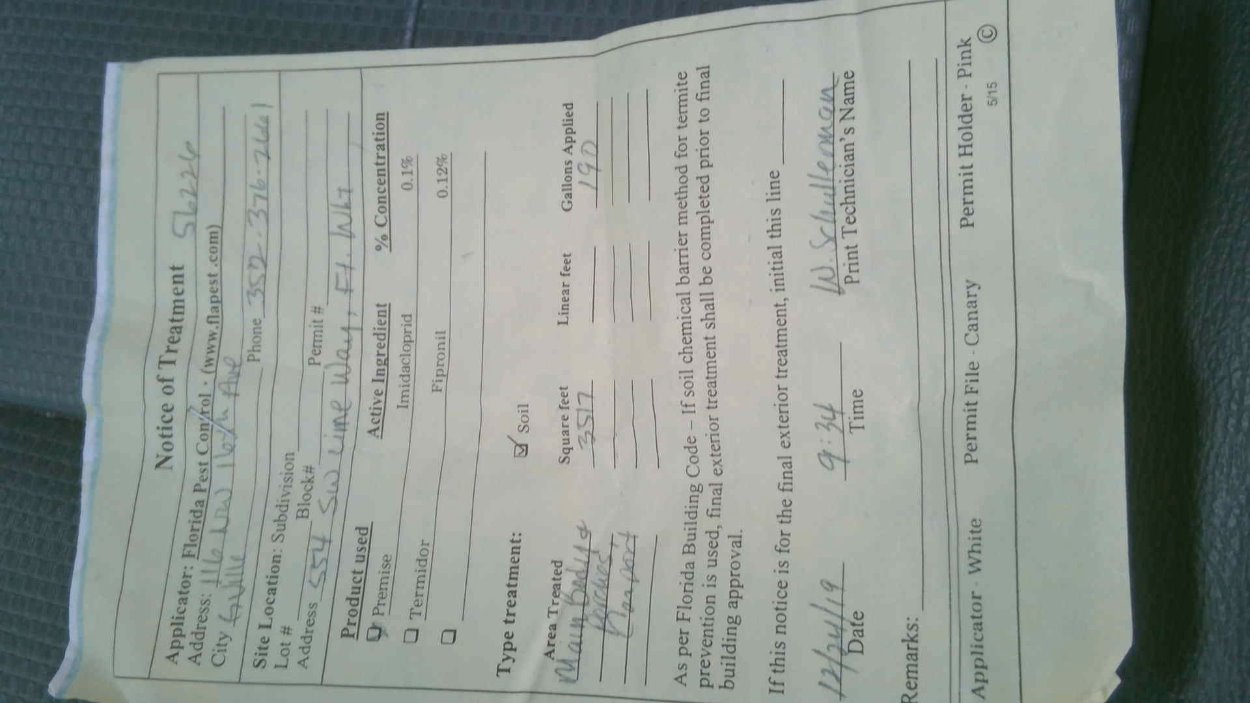 Notice of Treatment 56226
Applicator: Florida Pest Control • (www.flapest.com)
Address: 116 NW 16th Ave
City G'Ville Phone 352-376-2661
Site Location: Subdivision
Lot # Block# Permit #
Address 554 SW Lime Way, Ft. Wht
Product used Active Ingredient % Concentration
☑ Premise Imidacloprid 0.1%
☐ Termidor Fipronil 0.12%
☐
Type treatment: ☑ Soil
Area Treated Square feet Linear feet Gallons Applied
Main Body & 3517 190
Porches,
As per Florida Building Code – If soil chemical barrier method for termite
prevention is used, final exterior treatment shall be completed prior to final
building approval.
If this notice is for the final exterior treatment, initial this line
12/24/19 9:34 W. Schulleman
Date Time Print Technician's Name
Remarks:
Applicator - White Permit File - Canary Permit Holder - Pink
5/15 ©